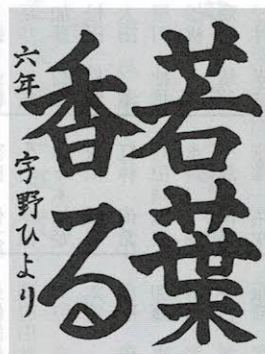 若葉
香る
六年 宇野ひより